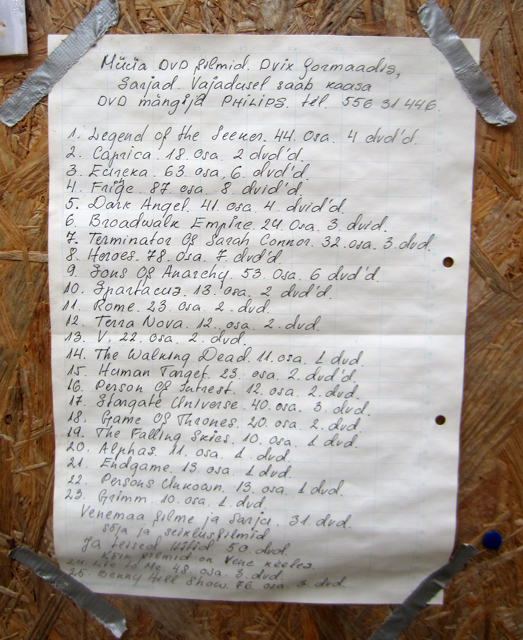 Müüa DVD filmid. Dvix formaadis,
Sarjad. Vajadusel saab kaasa
DVD mängija PHILIPS. tel 556 31 446.
1. Legend of the Seeker. 44. osa. 4 dvd'd.
2. Caprica. 18. osa. 2 dvd'd.
3. Eureka. 63. osa. 6. dvd'd.
4. Fringe. 87. osa. 8. dvid'd.
5. Dark Angel. 41. osa. 4. dvid'd.
6. Broadwalk Empire. 24. Osa. 3. dvid.
7. Terminator Of Sarah Connor. 32. osa. 3. dvd.
8. Heroes. 78. osa. 7 dvd'd
9. Sons Of Anarchy. 53. Osa. 6 dvd'd.
10. Spartacus. 13. osa. 2 dvd'd.
11. Rome. 23. osa. 2. dvd.
12. Terra Nova. 12. osa. 2. dvd.
13. V. 22. osa. 2. dvd.
14. The Walking Dead. 11. osa. 1 dvd.
15. Human Target. 23. osa. 2. dvd'd.
16. Person Of Intrest. 12. osa. 2. dvd.
17. Stargate Universe. 40. osa. 3. dvd.
18. Game Of Thrones. 20. osa. 2. dvd.
19. The Falling Skies. 10. osa. 1 dvd.
20. Alphas. 11. osa. 1. dvd.
21. Endgame. 13. osa. 1 dvd.
22. Persons Unkown. 13. osa. 1 dvd.
23. Grimm. 10. osa. 1 dvd.
Venemaa filme ja Sarju. 31. dvd.
sõja ja seiklusfilmid
ja teised 50. dvd.
Kõik filmid on Vene keeles.
24. Lie to Me. 48. osa. 3. dvd.
25. Benny Hill Show. 76. osa. 3 dvd.